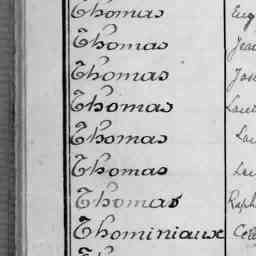 Thomas Eug
Thomas Jea
Thomas Jos
Thomas
Thomas
Thomas
Thomas Raph
Thominiaux Cel